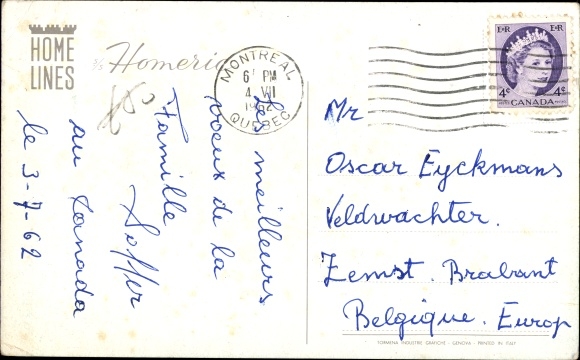 HOME
LINES
S/S Homeric
MONTREAL
6 PM
4 VII
1962
QUEBEC
E II R E II R
4¢ 4¢
CANADA
Les meilleurs
voeux de la
Famille
Soffer
au Canada
le 3-7-62
Mr
Oscar Eyckmans
Veldwachter.
Zemst. Brabant
Belgique. Europ
TORMENA INDUSTRIE GRAFICHE - GENOVA - PRINTED IN ITALY